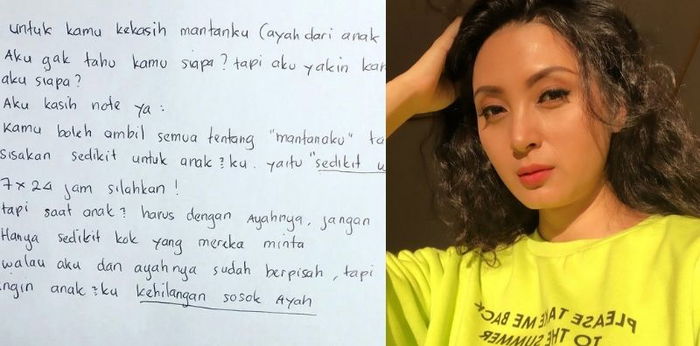 untuk kamu kekasih mantanku (ayah dari anak
Aku gak tahu kamu siapa? tapi aku yakin
aku siapa?
Aku kasih note ya :
Kamu boleh ambil semua tentang "mantanaku"
sisakan sedikit untuk anak²ku. yaitu "sedikit
7x24 jam silahkan!
tapi saat anak² harus dengan Ayahnya, jangan
Hanya sedikit kok yang mereka minta
walau aku dan ayahnya sudah berpisah, tapi
ingin anak²ku kehilangan sosok Ayah
PLEASE TAKE ME BACK
TO THE SUMMER